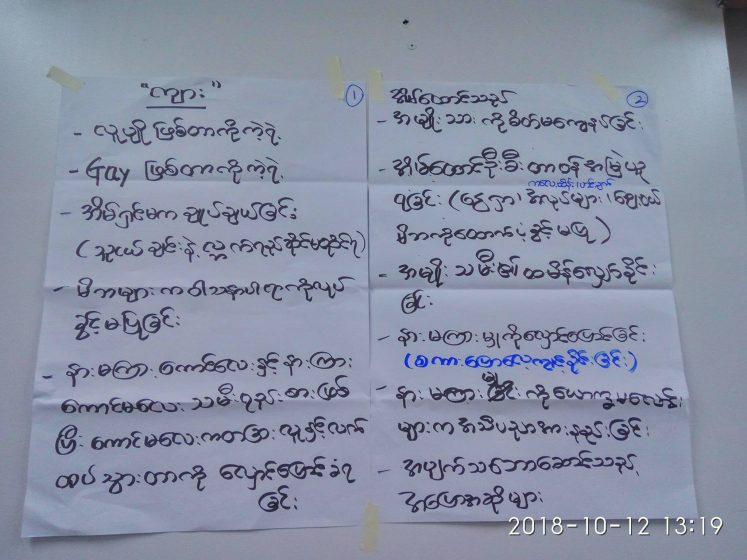 "ကျား"
①
- လူပျို ဖြစ်တာကိုကဲ့ရဲ့
- Gay ဖြစ်တာကိုကဲ့ရဲ့
- အိမ်ရှင်မက ချုပ်ချယ်ခြင်း
(သူငယ်ချင်းနဲ့ လ္ဘက်ရည်ဆိုင်မထိုင်ရ)
- မိဘများက ဝါသနာပါရာကိုလုပ်
ခွင့်မပြုခြင်း
- နားမကြား ကောင်လေးနှင့် နားကြား
ကောင်မလေး သမီးရည်းစားဖြစ်
ပြီး ကောင်မလေးက တခြားလူနှင့်လက်
ထပ်သွားတာကို လှောင်ပြောင်ခံရ
ခြင်း
②
အိမ်ထောင်သည်
- အမျိုးသားကိုစိတ်မကျေနပ်ခြင်း
- အိမ်ထောင်ဦးစီး တာဝန်အမြဲယူ
ရခြင်း (ငွေရှာ အိမ်အလုပ်များ၊ ချွေးငယ်
ကလေးထိန်း၊
မိဘကိုထောက်ပံ့ခွင့်မပြု)
- အမျိုးသမီး၏ထမိန်လျှော်ခိုင်း
ခြင်း
- နားမကြားမှုကိုလှောင်ပြောင်ခြင်း
(စကားပြောလေ့ကျင့်ခိုင်းခြင်း)
- နားမကြားမှုကိုယောက္ခမလောင်း
များက အသိပညာအားနည်းခြင်း
- အပျက်သဘောဆောင်သည့်
အပြောအဆိုများ
2018-10-12 13:19